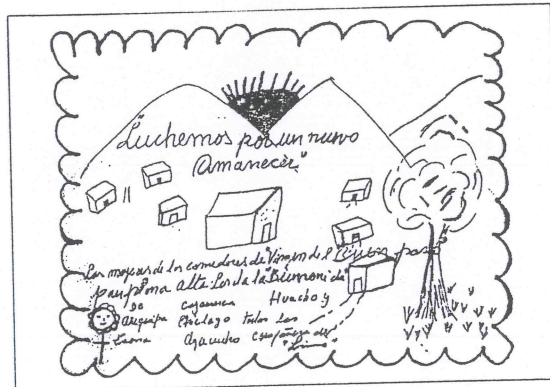 "Luchemos por un nuevo
Amanecer"
Las mujeres de los comedores de "Virgen del
Pamplona Alta les da la Bienvenida"
De Cajamarca Huacho y
Arequipa Chiclayo todas las
Tacna Ayacucho compañeras de
"Lima"